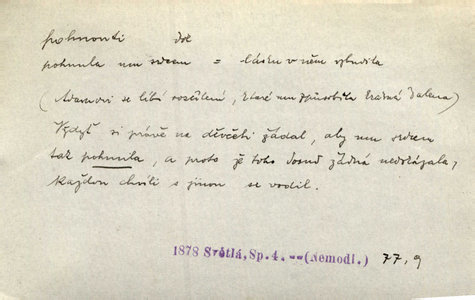 pohnouti dok
pohnula mu srdcem = lásku v něm vzbudila
(Adamovi se líbí rozčilení, které mu způsobila krásná Dalena)
Vždyť si právě na děvčeti žádal, aby mu srdcem
tak pohnula, a proto je toho dosud žádná nedokázala,
každou chvíli s jinou se vodil.
1878 Světlá, Sp. 4. -- (Nemodl.) 77, 9